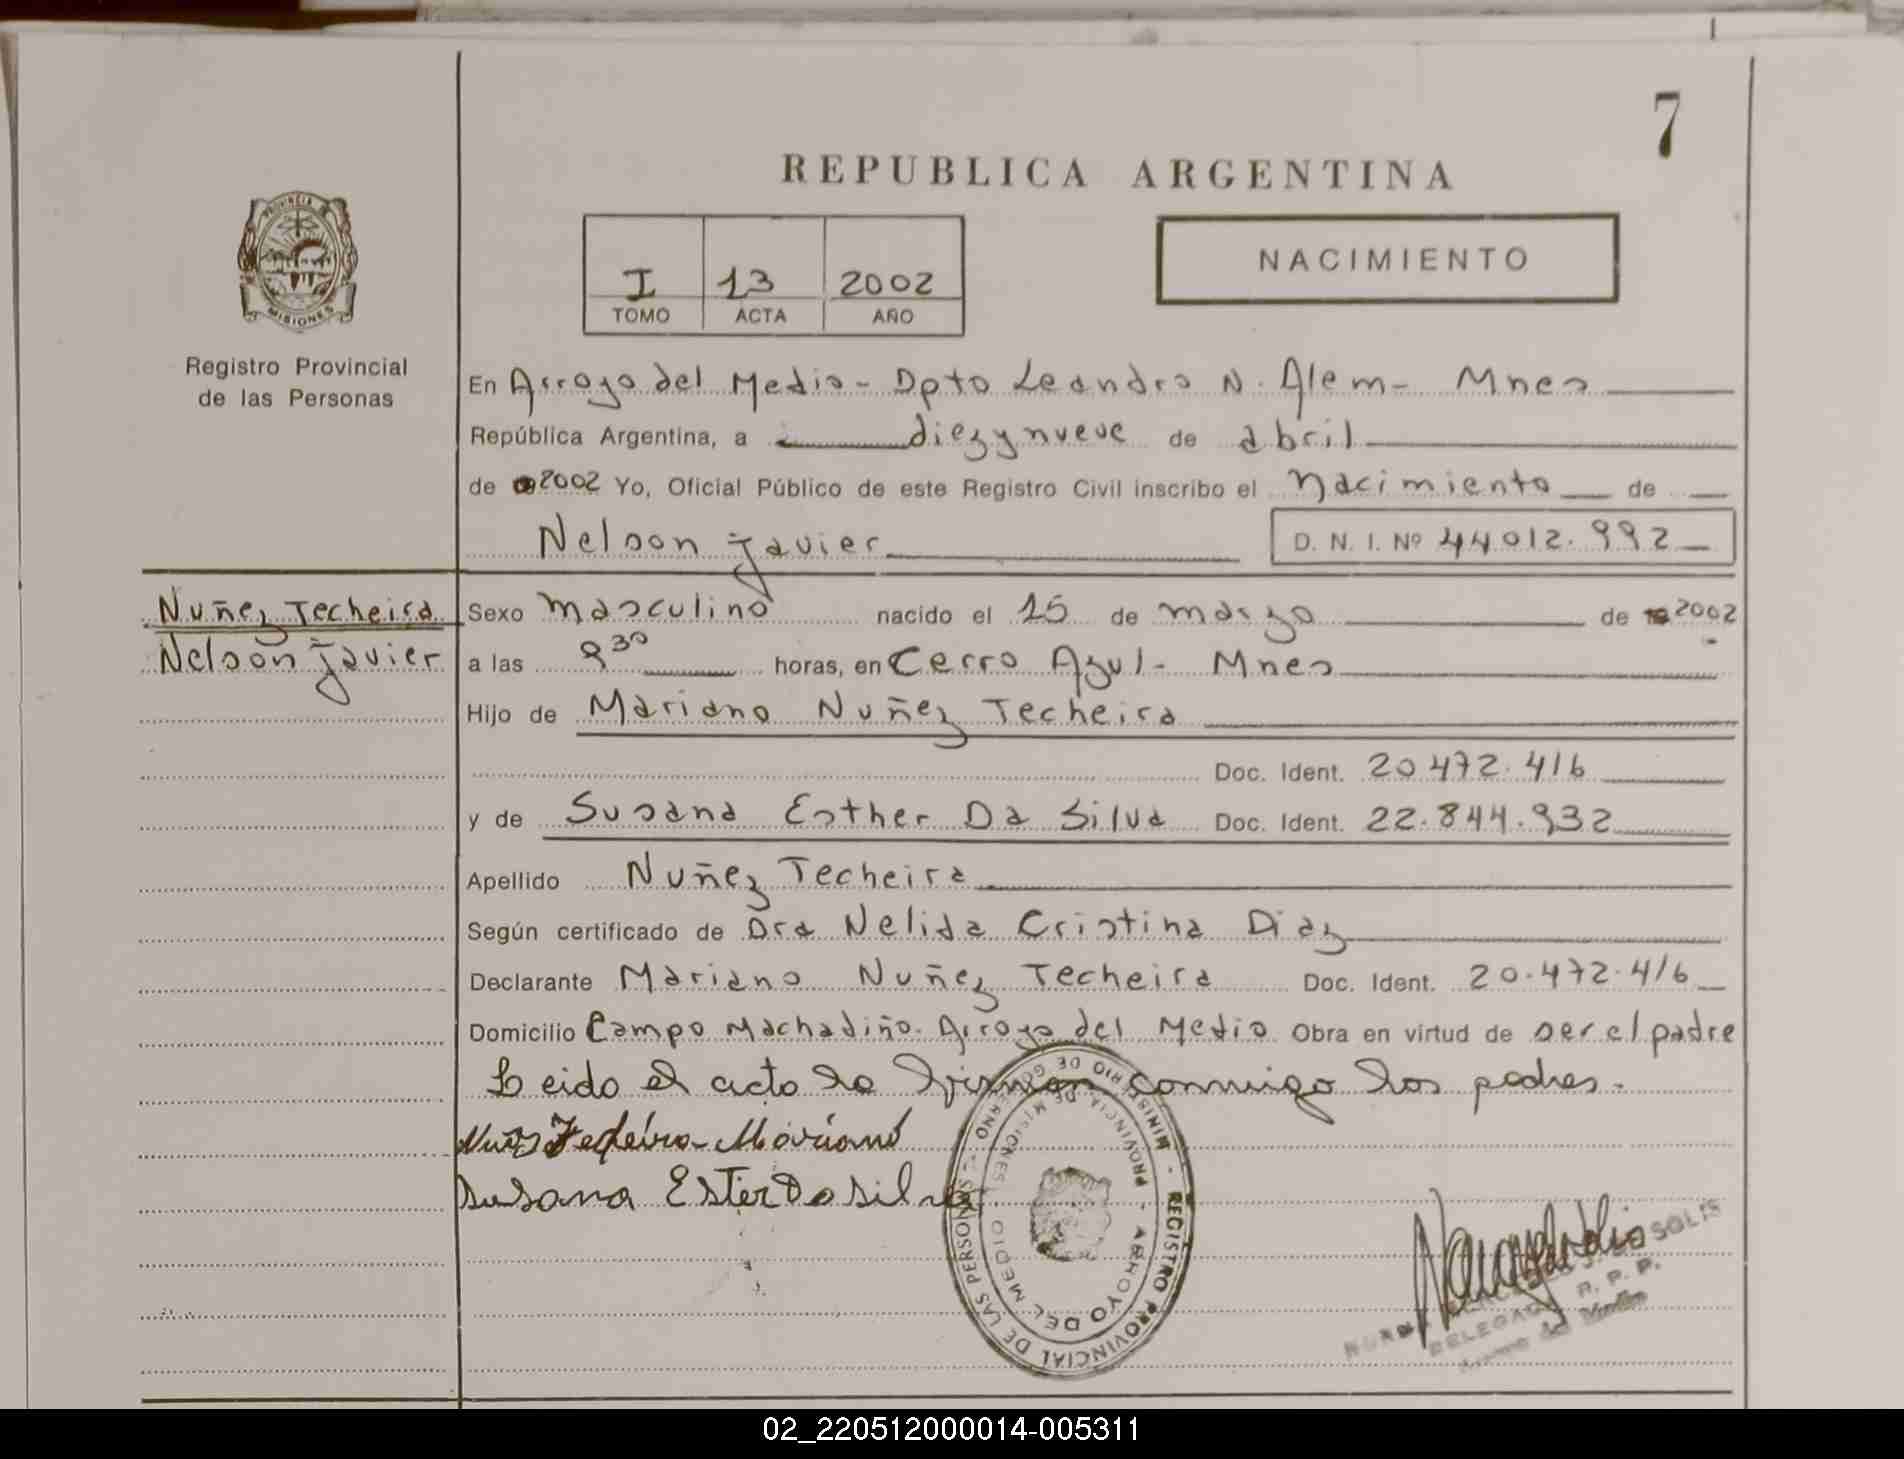 7
REPUBLICA ARGENTINA
PROVINCIA DE
MISIONES
Registro Provincial
de las Personas
I 13 2002
TOMO ACTA AÑO
NACIMIENTO
En Arroyo del Medio - Dpto Leandro N. Alem - Mnes
República Argentina, a diez y nueve de abril
de 2002 Yo, Oficial Público de este Registro Civil inscribo el Nacimiento de
Nelson Javier D. N. I. Nº 44.012.992
Nuñez Techeira
Nelson Javier
Sexo Masculino nacido el 15 de marzo de 2002
a las 9 30 horas, en Cerro Azul - Mnes
Hijo de Mariano Nuñez Techeira
Doc. Ident. 20.472.416
y de Susana Esther Da Silva Doc. Ident. 22.844.932
Apellido Nuñez Techeira
Según certificado de Dra Nelida Cristina Diaz
Declarante Mariano Nuñez Techeira Doc. Ident. 20.472.416
Domicilio Campo Machadiño. Arroyo del Medio Obra en virtud de ser el padre
Leido el acto lo firman conmigo los padres.
Techeira - Mariano
Susana Ester Da silva
REGISTRO PROVINCIAL DE LAS PERSONAS - MINISTERIO DE GOBIERNO -
PROVINCIA DE MISIONES - ARROYO DEL MEDIO
SOLIS
DELEGADA R. P. P.
Arroyo del Medio
02_220512000014-005311